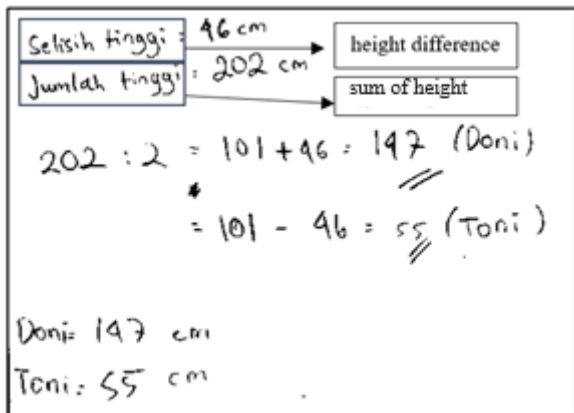 Selisih tinggi = 46 cm
height difference
Jumlah tinggi : 202 cm
sum of height
202 : 2 = 101 + 46 = 147 (Doni)
= 101 - 46 = 55 (Toni)
Doni = 147 cm
Toni = 55 cm